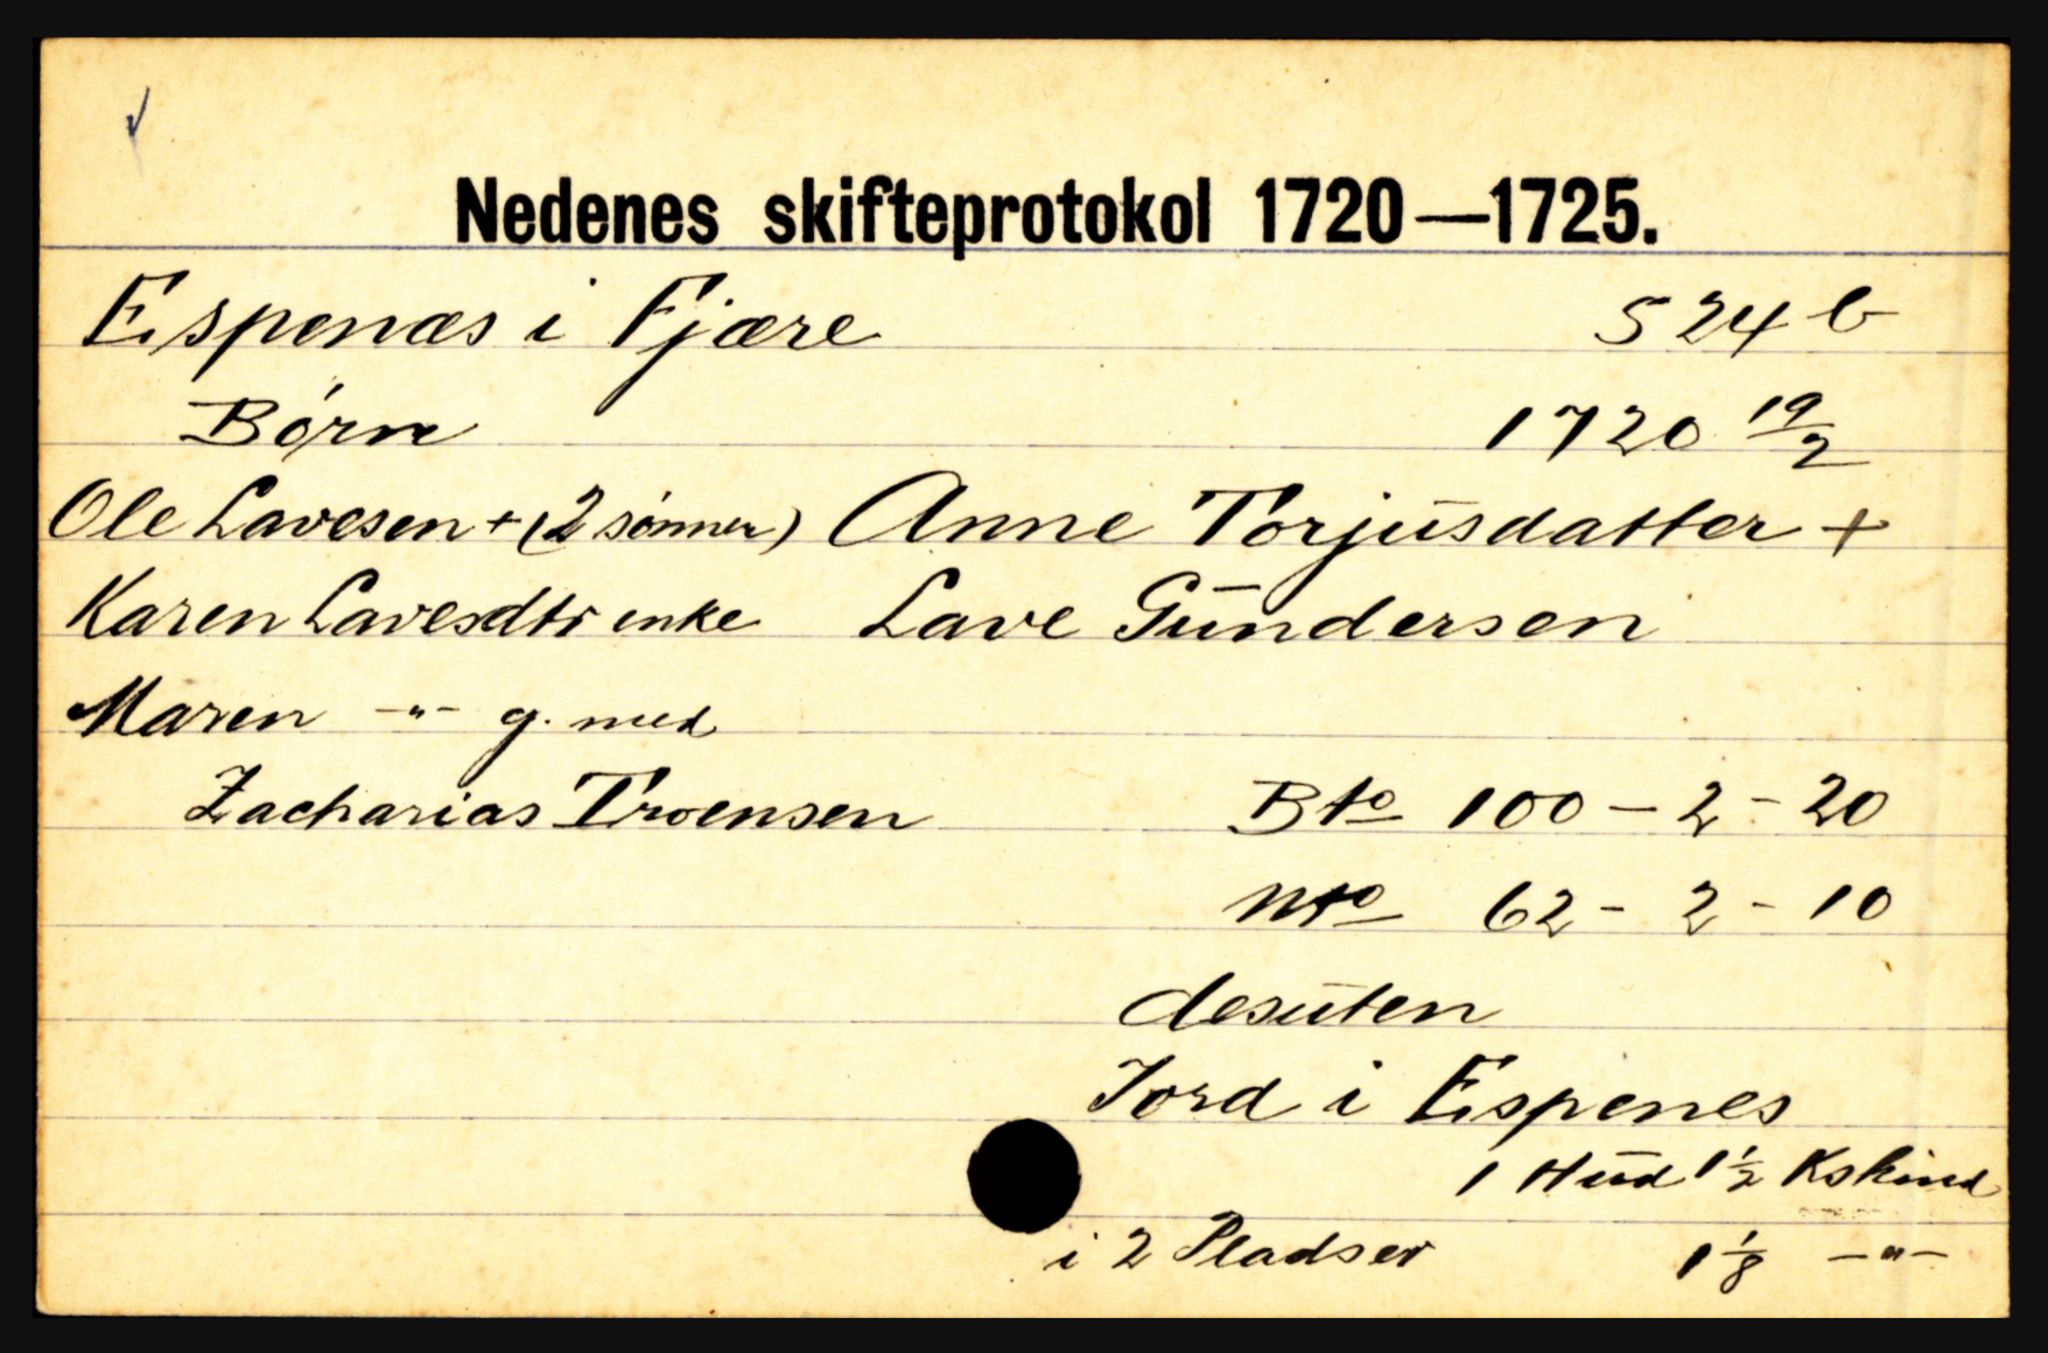 Nedenes skifteprotokol 1720—1725.
Espenæs i Fjære 524 b
Børn 1720 19/2
Ole Lavesen + (2 sønner) Anne Torjusdatter +
Karen Lavesdtr enke Lave Gundersen
Maren -"- g. med
Zacharias Troensen Bto 100 - 2 - 20
Nto 62 - 2 - 10
desuten
Jord i Espenes
1 Hud 1 1/2 Kskind
i 2 Pladser 1 1/8 -"-